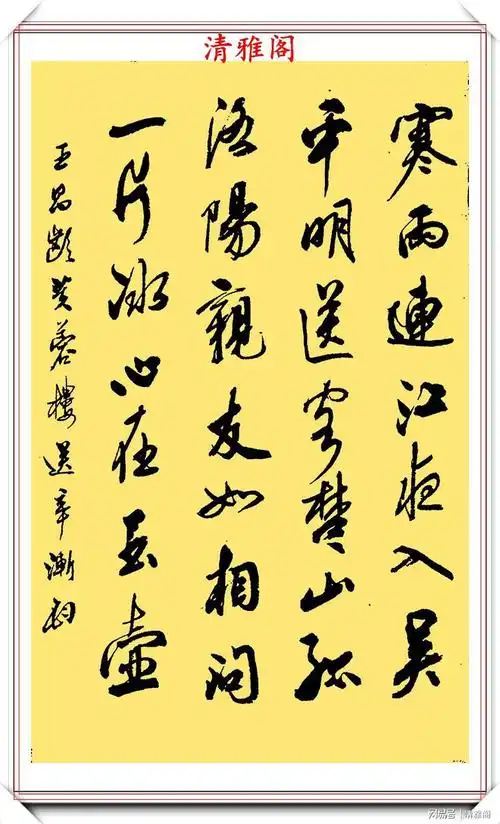 清雅阁
寒雨連江夜入吴
平明送客楚山孤
洛陽親友如相問
一片冰心在玉壺
王昌齡芙蓉樓送辛漸
网易号 | 清雅阁